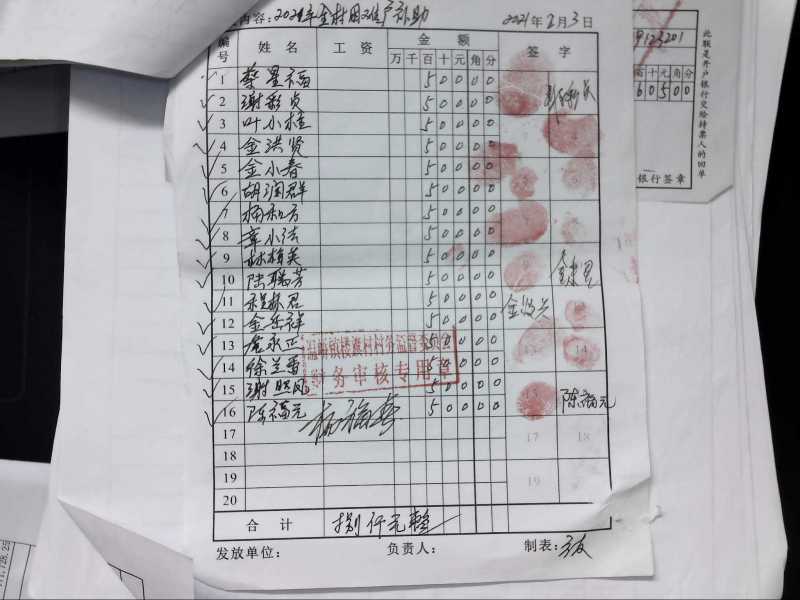 内容：2021年全村困难户补助 2021年2月3日
编号 姓名 工资 金额 签字
万 千 百 十 元 角 分
1 蔡星福 5 0 0 0 0
2 谢彩贞 5 0 0 0 0
3 叶小桂 5 0 0 0 0
4 金洪贤 5 0 0 0 0
5 金小春 5 0 0 0 0
6 胡润群 5 0 0 0 0
7 5 0 0 0 0
8 章小法 5 0 0 0 0
9 林梅英 5 0 0 0 0
10 陆瑞芳 5 0 0 0 0
11 5 0 0 0 0
12 金岳祥 5 0 0 0 0 金岳兴
13 永正 5 0 0 0 0
14 徐兰香 5 0 0 0 0
15 谢照凤 5 0 0 0 0
16 陈福元 5 0 0 0 0 陈福元
17
18
19
20
村务监督委员会
财务审核专用章
杨福春
13 14
15
17 18
19
合计 捌仟元整
发放单位： 负责人： 制表：
9123201
十 元 角 分
6 0 5 0 0
银行签章
此联是开户银行交给持票人的回单